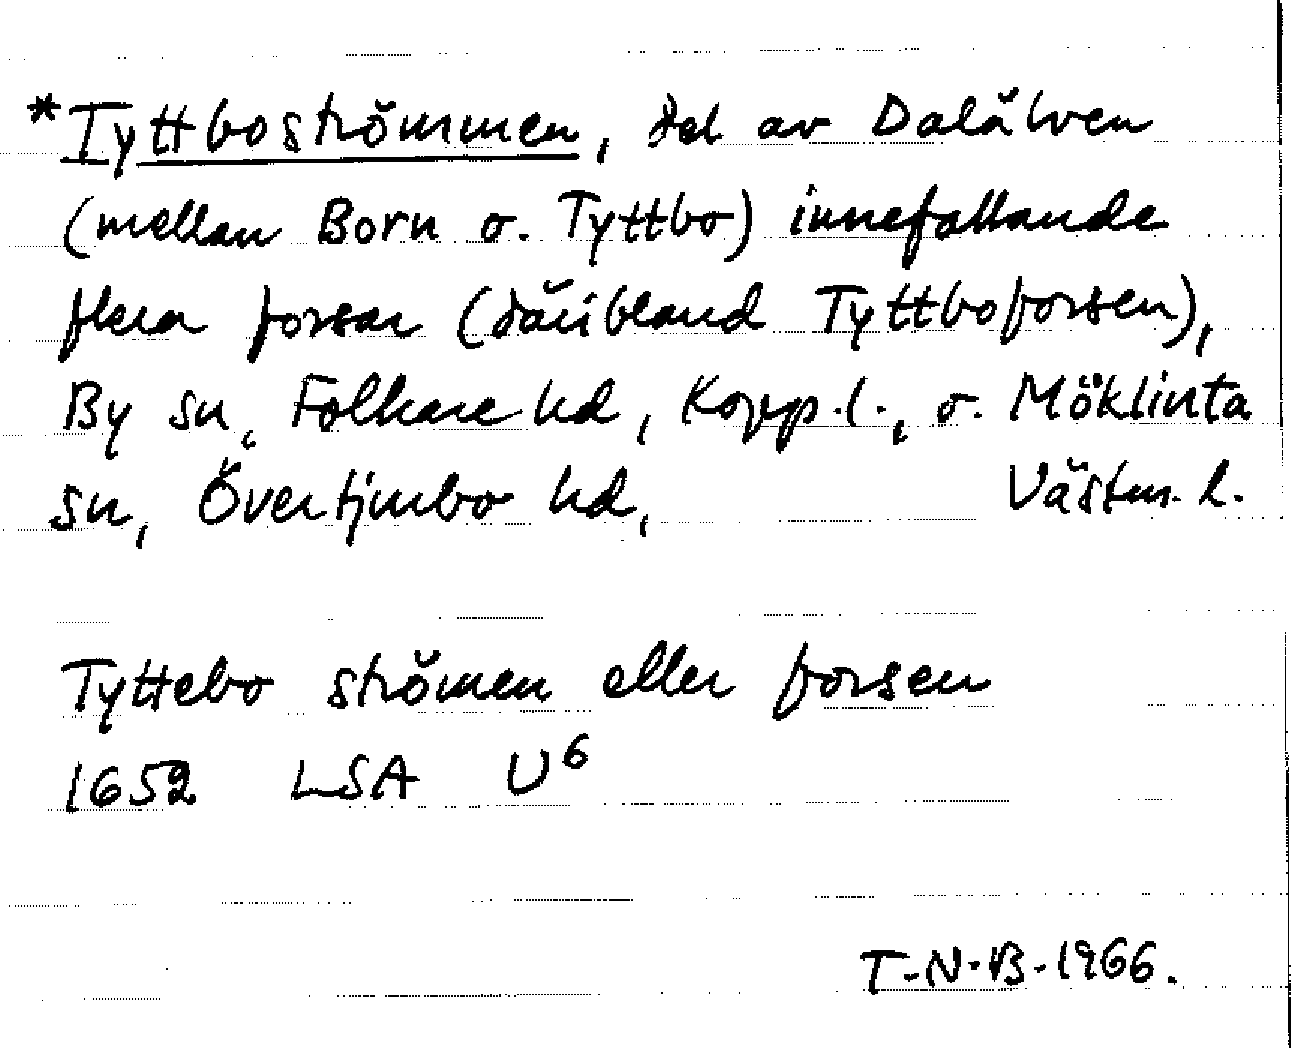 *Tyttboströmmen, del av Dalälven
(mellan Born o. Tyttbo) innefattande
flera forsar (däribland Tyttboforsen),
By sn, Folkare hd, Kopp. l., o. Möklinta
sn, Övertjurbo hd, Västm. l.
Tyttebo strömen eller forsen
1652 LSA U6
T-N-B-1966.